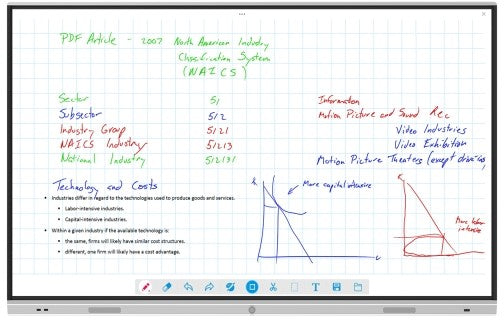 PDF Article - 2007 North American Industry
Classification System
(NAICS)
Sector 51 Information
Subsector 512 Motion Picture and Sound Rec
Industry Group 5121 Video Industries
NAICS Industry 51213 Video Exhibition
National Industry 512131 Motion Picture Theaters (except drive-ins)
Technology and Costs
• Industries differ in regard to the technologies used to produce goods and services.
• Labor-intensive industries.
• Capital-intensive industries.
• Within a given industry if the available technology is:
• the same, firms will likely have similar cost structures.
• different, one firm will likely have a cost advantage.
k
More capital intensive
L
K
More labor
intensive
L
T